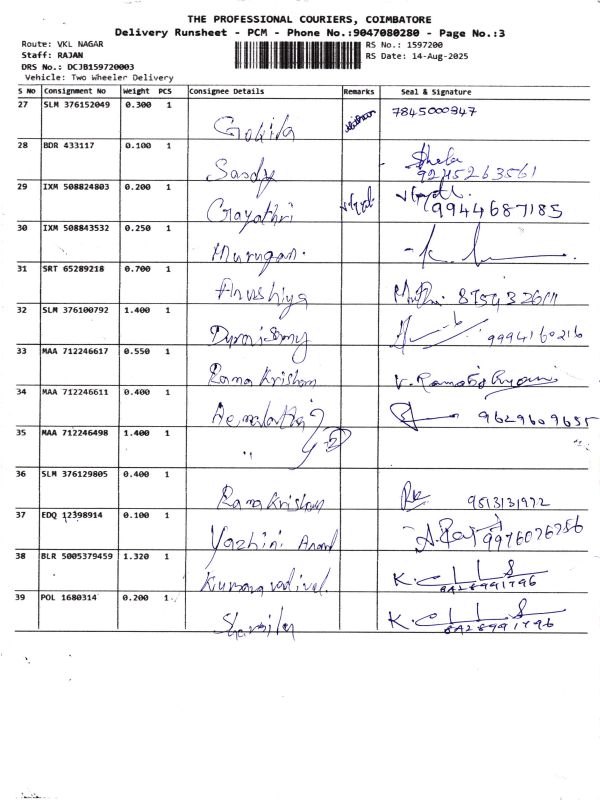 THE PROFESSIONAL COURIERS, COIMBATORE
Delivery Runsheet - PCM - Phone No.:9047080280 - Page No.:3
Route: VKL NAGAR
RS No.: 1597200
Staff: RAJAN
RS Date: 14-Aug-2025
DRS No.: DCJB159720003
Vehicle: Two Wheeler Delivery
S No Consignment No Weight PCS Consignee Details Remarks Seal & Signature
27 SLM 376152049 0.300 1 Gokila 7845000347
28 BDR 433117 0.100 1 Sheba 9245263561
29 IXM 508824803 0.200 1 Gayathri 9944687185
30 IXM 508843532 0.250 1 Murugan.
31 SRT 65289218 0.700 1 Anushiya
32 SLM 376100792 1.400 1 9994160216
33 MAA 712246617 0.550 1 Rama Krishnan
34 MAA 712246611 0.400 1 Hemalatha 9629609655
35 MAA 712246498 1.400 1 "
36 SLM 376129805 0.400 1 Rama Krishnan RK 9513131972
37 EDQ 12398914 0.100 1 Yazhini Anand 9976076756
38 BLR 5005379459 1.320 1 Kumaravadivel
39 POL 1680314 0.200 1 Sharmila